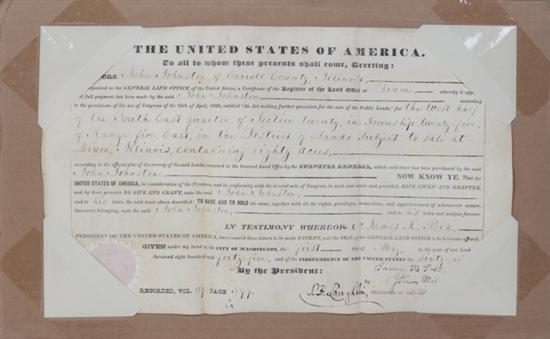 THE UNITED STATES OF AMERICA.
To all to whom these presents shall come, Greeting:
John Johnston of Carroll County, Illinois,
deposited in the GENERAL LAND OFFICE of the United States, a Certificate of the Register of the Land Office at Dixon whereby it app
full payment has been made by the said John Johnston according
to the provisions of the act of Congress of the 24th of April, 1820, entitled "An Act making further provision for the sale of the Public Lands," for the West half
of the South East quarter of Section twenty, in Township twenty five,
of Range five East, in the District of Lands Subject to Sale at
Dixon, Illinois, containing eighty acres,
according to the official plat of the survey of the said Lands, returned to the General Land Office by the SURVEYOR GENERAL, which said tract has been purchased by the said
John Johnston NOW KNOW YE, That the
UNITED STATES OF AMERICA, in consideration of the Premises, and in conformity with the several acts of Congress, in such case made and provided, HAVE GIVEN AND GRANTED,
and by these presents DO GIVE AND GRANT, unto the said John Johnston,
and to his heirs, the said tract above described: TO HAVE AND TO HOLD the same, together with all the rights, privileges, immunities, and appurtenances of whatsoever nature,
thereunto belonging, unto the said John Johnston, and to his heirs and assigns forever.
IN TESTIMONY WHEREOF, I, James K. Polk
PRESIDENT OF THE UNITED STATES OF AMERICA, have caused these Letters to be made PATENT, and the SEAL of the GENERAL LAND OFFICE to be hereunto affixed.
GIVEN under my hand at the CITY OF WASHINGTON, the first day of May in the year of our Lord
thousand eight hundred and forty five, and of the INDEPENDENCE OF THE UNITED STATES the Sixty ninth
By the President: James K. Polk
By
S. H. Laughlin
RECORDED, VOL. PAGE